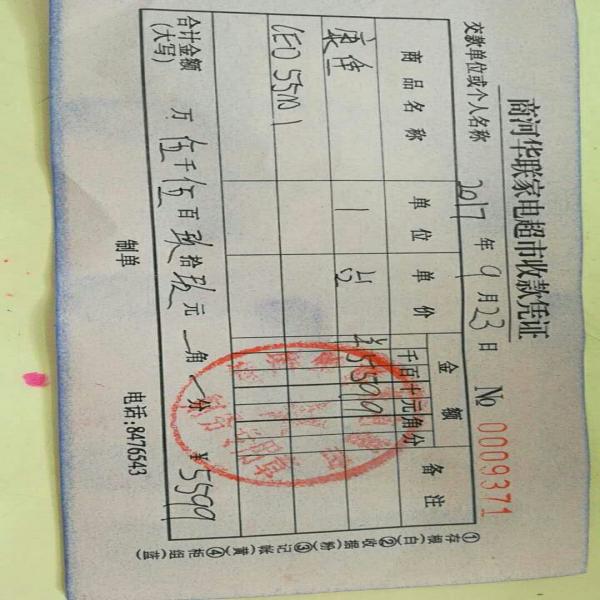 商河华联家电超市收款凭证
交款单位或个人名称 2017 年 9 月 23 日 No 0009371
商品名称 单位 单价 金额 备注
千百十元角分
康佳 1 台 ¥5599
LED 55
合计金额 万 伍千伍百玖拾玖元 角 分 ¥5599
(大写)
制单 电话:8476543
①存根(白)②收据(粉)③记帐(黄)④柜组(蓝)